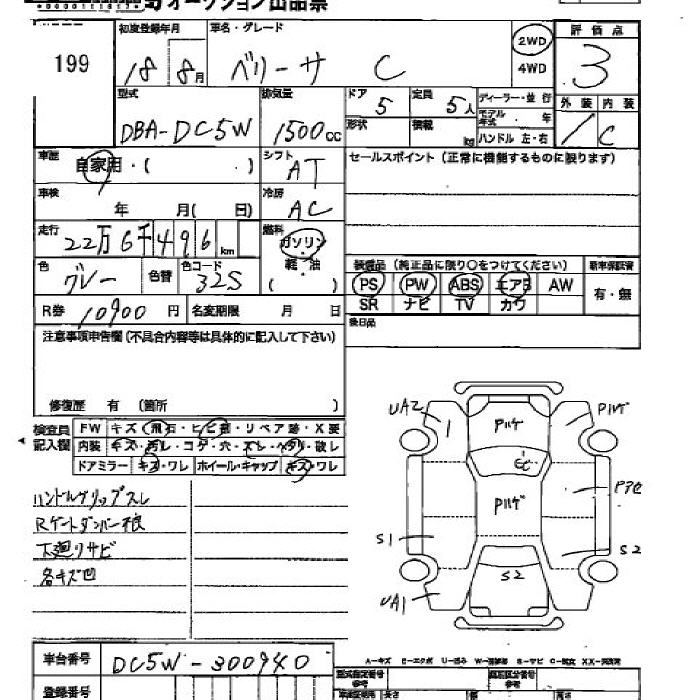 オークション出品票
199
初度登録年月
18 8月
車名・グレード
ベリーサ C
2WD
4WD
評価点
3
型式
DBA-DC5W
排気量
1500cc
ドア 5
定員 5人
形状
積載 kg
ディーラー・並行
モデル年式 ・ 年
ハンドル 左・右
外装 内装
/ C
車歴
自家用・( ・ )
シフト
AT
セールスポイント(正常に機能するものに限ります)
車検
年 月( 日)
冷房
AC
走行
22万6千496km
燃料
ガソリン
軽・油
( )
色
グレー
色替
色コード
32S
装備品(純正品に限り○をつけてください)
新車保証書
PS PW ABS エアB AW
有・無
SR ナビ TV カワ
R券 10900円
名変期限 月 日
後日品
注意事項申告欄(不具合内容等は具体的に記入して下さい)
修復歴 有 (箇所 )
検査員記入欄
FW キズ・飛石・ヒビ割・リペア跡・X要
内装 キズ・汚レ・コゲ・穴・スレ・ヘタリ・破レ
ドアミラー キズ・ワレ ホイール・キャップ キズ・ワレ
ハンドルグリップスレ
Rゲートダンパー不良
下廻リサビ
各キズ凹
UA2
1
Pハゲ
Pハゲ
ヒビ
Pハゲ
Pアセ
S1
S2
S2
UA1
A-キズ E-エクボ U-凹み W-補修跡 S-サビ C-腐食 XX-交換済
車台番号
DC5W-300940
型式指定番号
参考
類別区分番号
参考
登録番号
長さ
幅